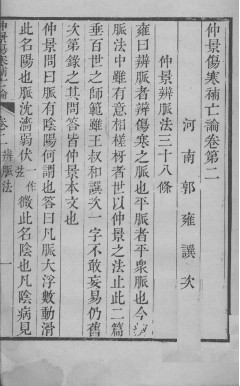 仲景傷寒補亡論卷第二
河南郭雍譔次
仲景辨脈法三十八條
雍曰辨脈者辨傷寒之脈也平脈者平衆脈也今
脈法中雖有意相樣者世以仲景之法止此二篇
垂百世之師範雖王叔和譔次一字不敢妄易仍舊
次第錄之其問答皆仲景本文也
仲景問曰脈有陰陽何謂也答曰凡脈大浮數動滑
此名陽也脈沈濇弱伏弦一作微此名陰也凡陰病見
仲景傷寒補亡論 卷二 辨脈法 一